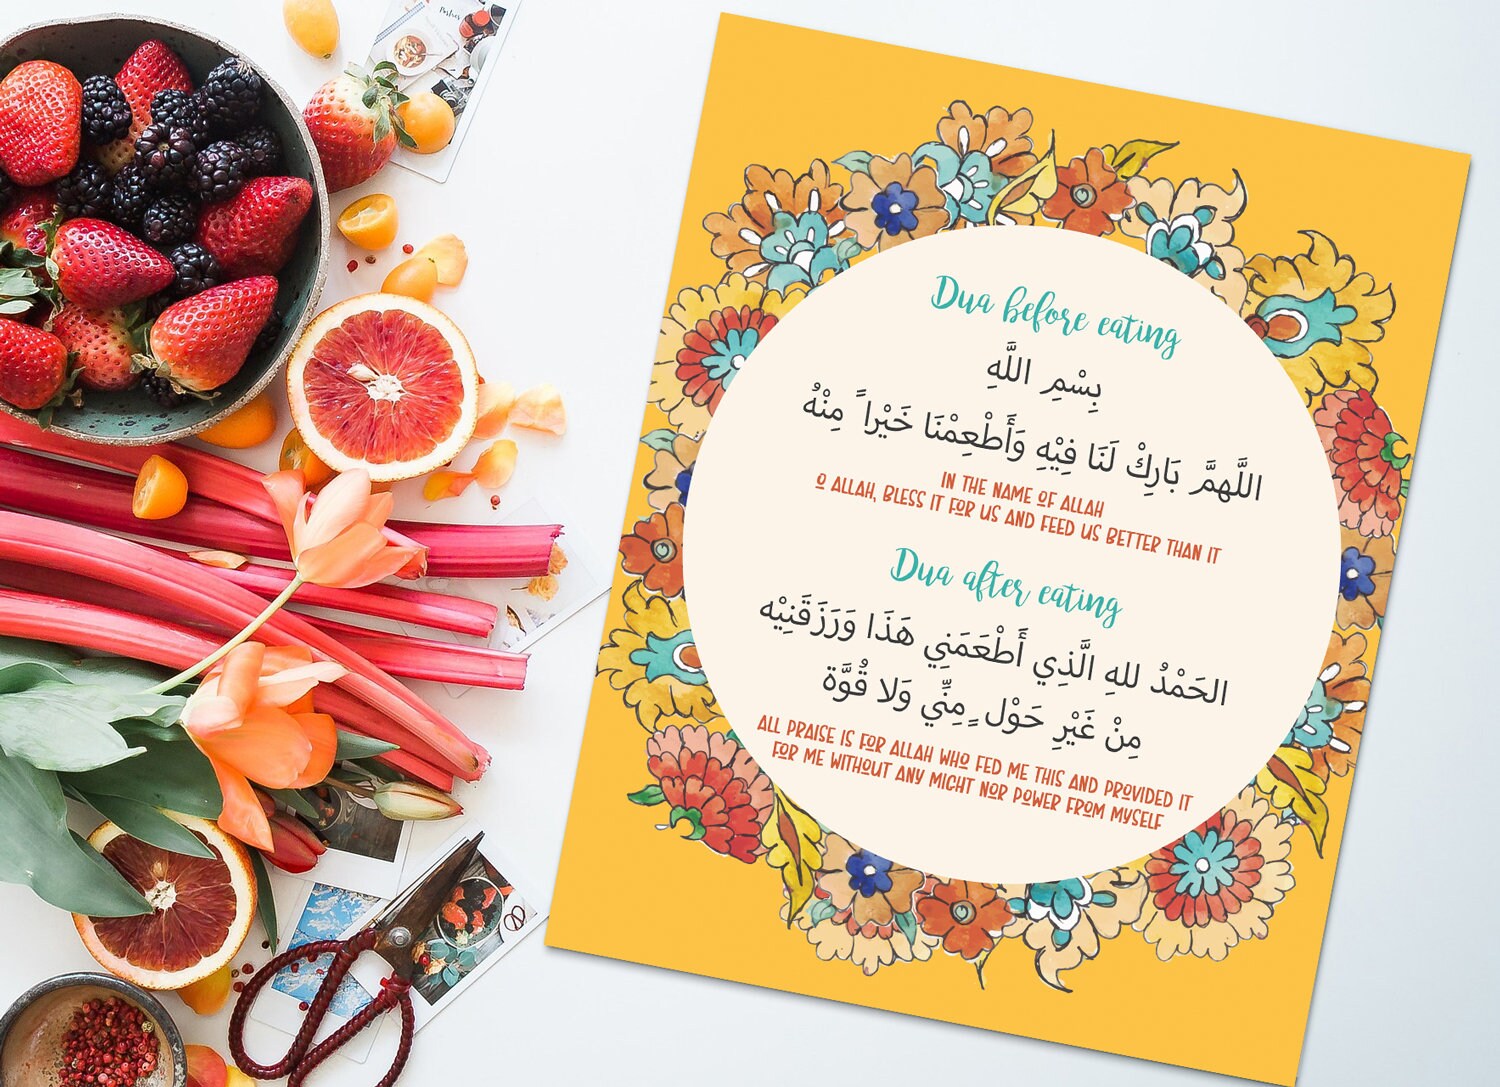 Dua before eating
بِسْمِ اللَّهِ
اللَّهمَّ بَارِكْ لَنَا فِيْهِ وَأَطْعِمْنَا خَيْراً مِنْهُ
IN THE NAME OF ALLAH
O ALLAH, BLESS IT FOR US AND FEED US BETTER THAN IT
Dua after eating
الحَمْدُ للهِ الَّذِي أَطْعَمَنِي هَذَا وَرَزَقَنِيْه
مِنْ غَيْرِ حَوْلٍ مِنِّي وَلا قُوَّة
ALL PRAISE IS FOR ALLAH WHO FED ME THIS AND PROVIDED IT
FOR ME WITHOUT ANY MIGHT NOR POWER FROM MYSELF